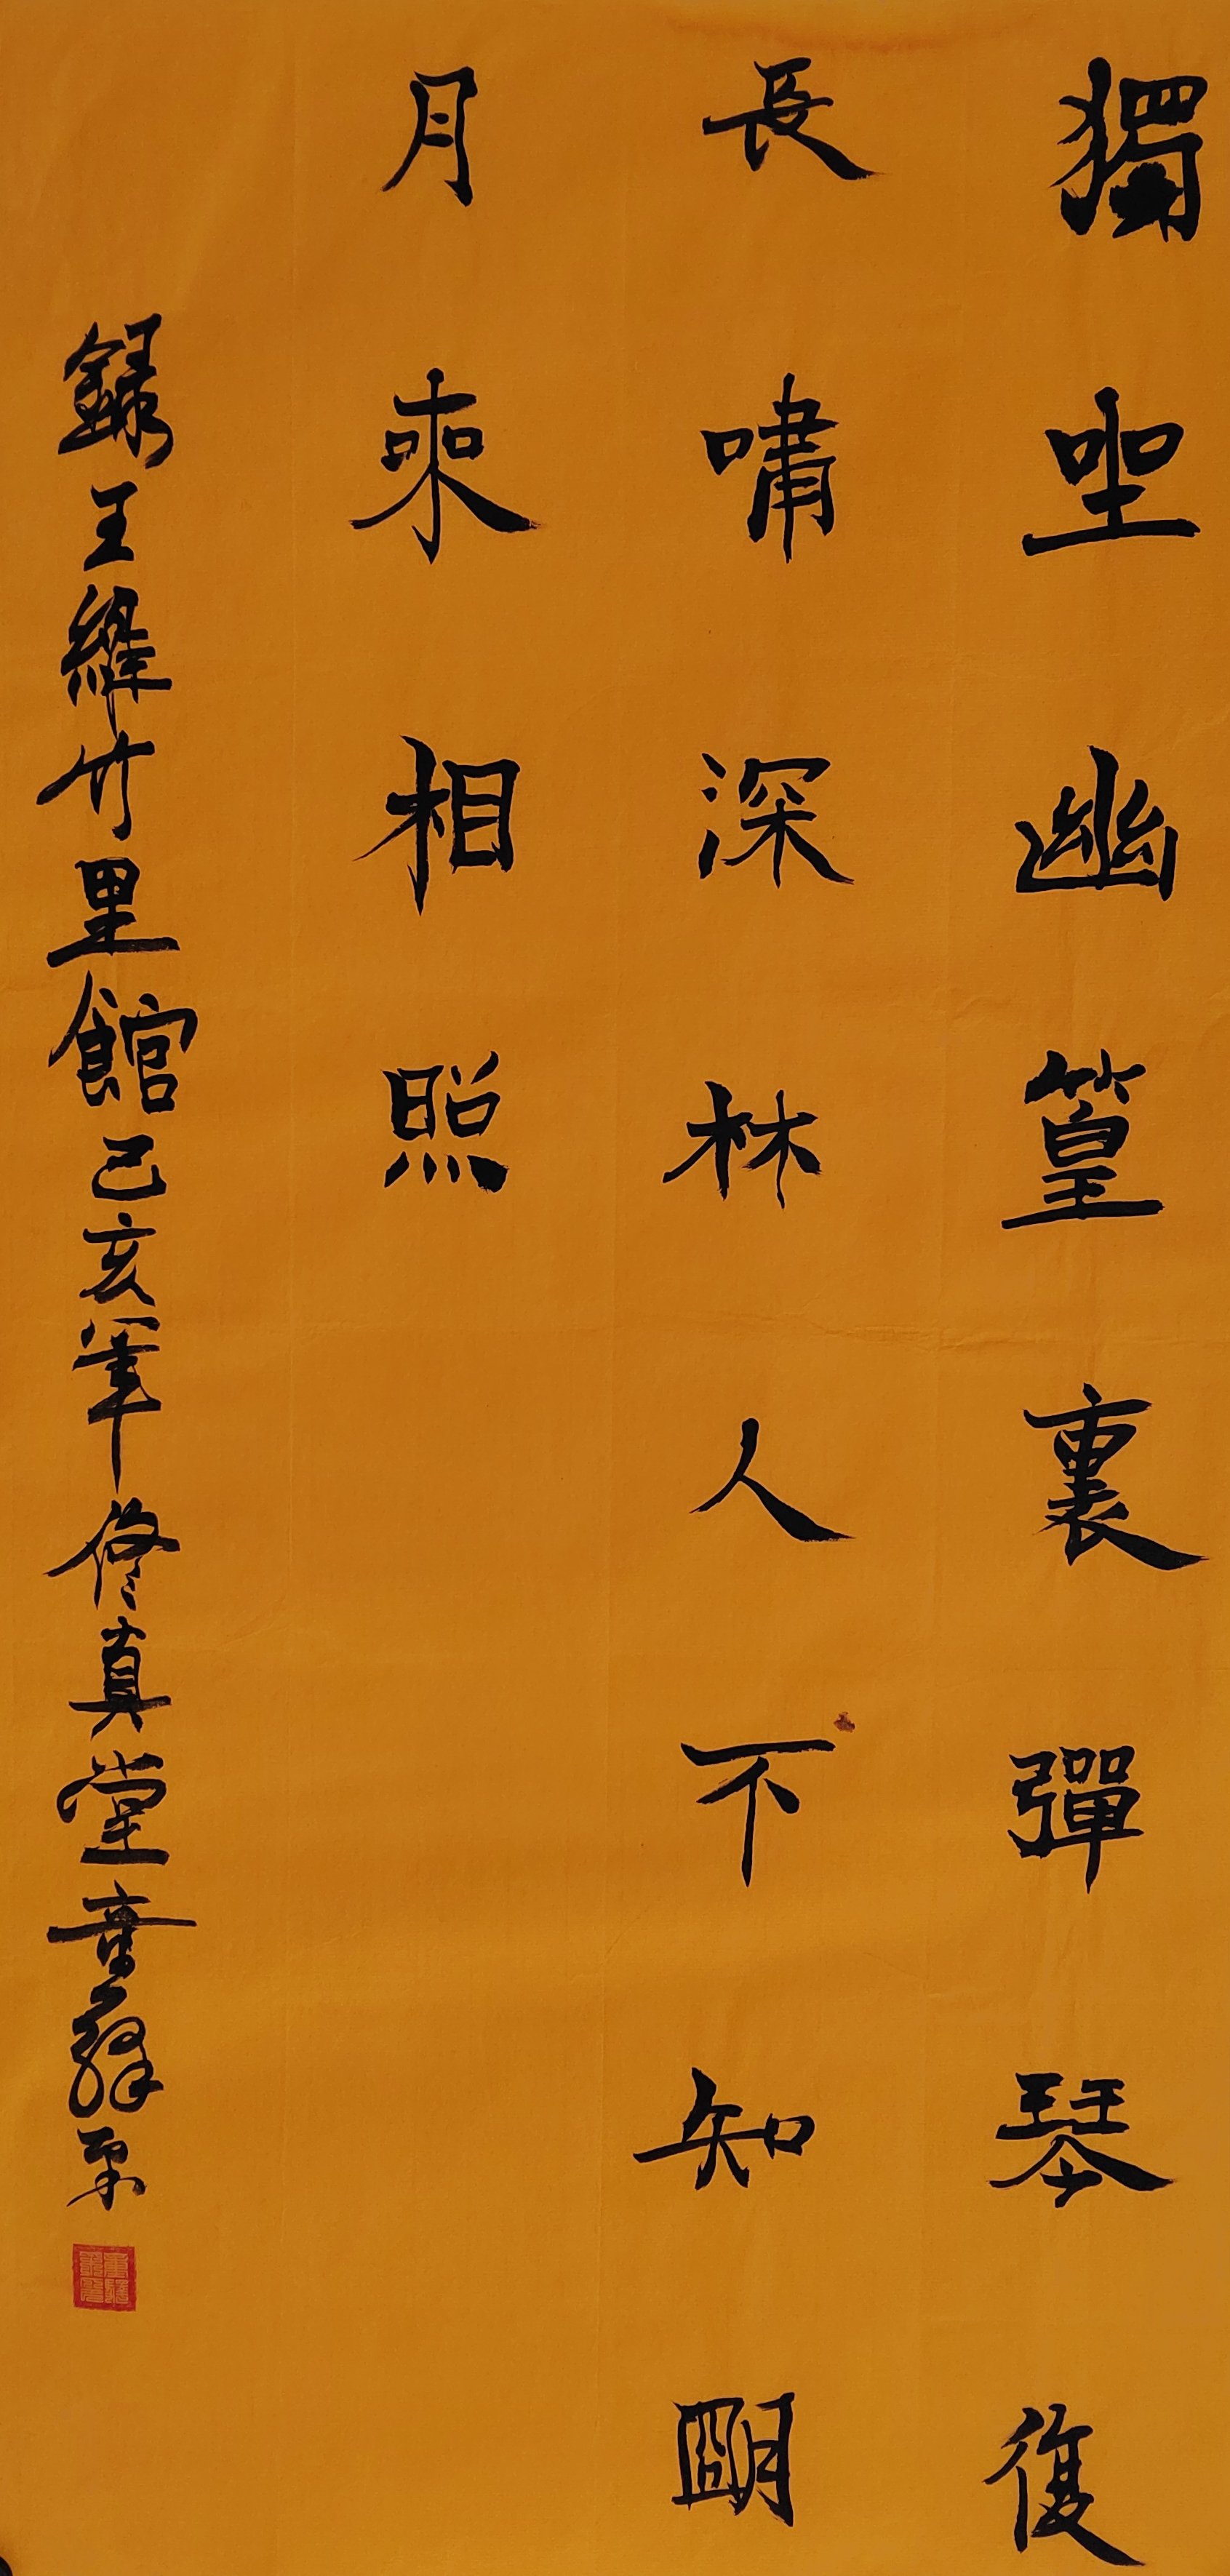 獨坐幽篁裏彈琴復
長嘯深林人不知朙
月來相照
錄王維竹里館己亥年修真堂童